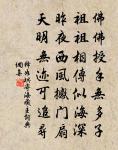 佛佛授手無多子
祖祖相傳似海深
昨夜西風門扇
天明無迹可追尋